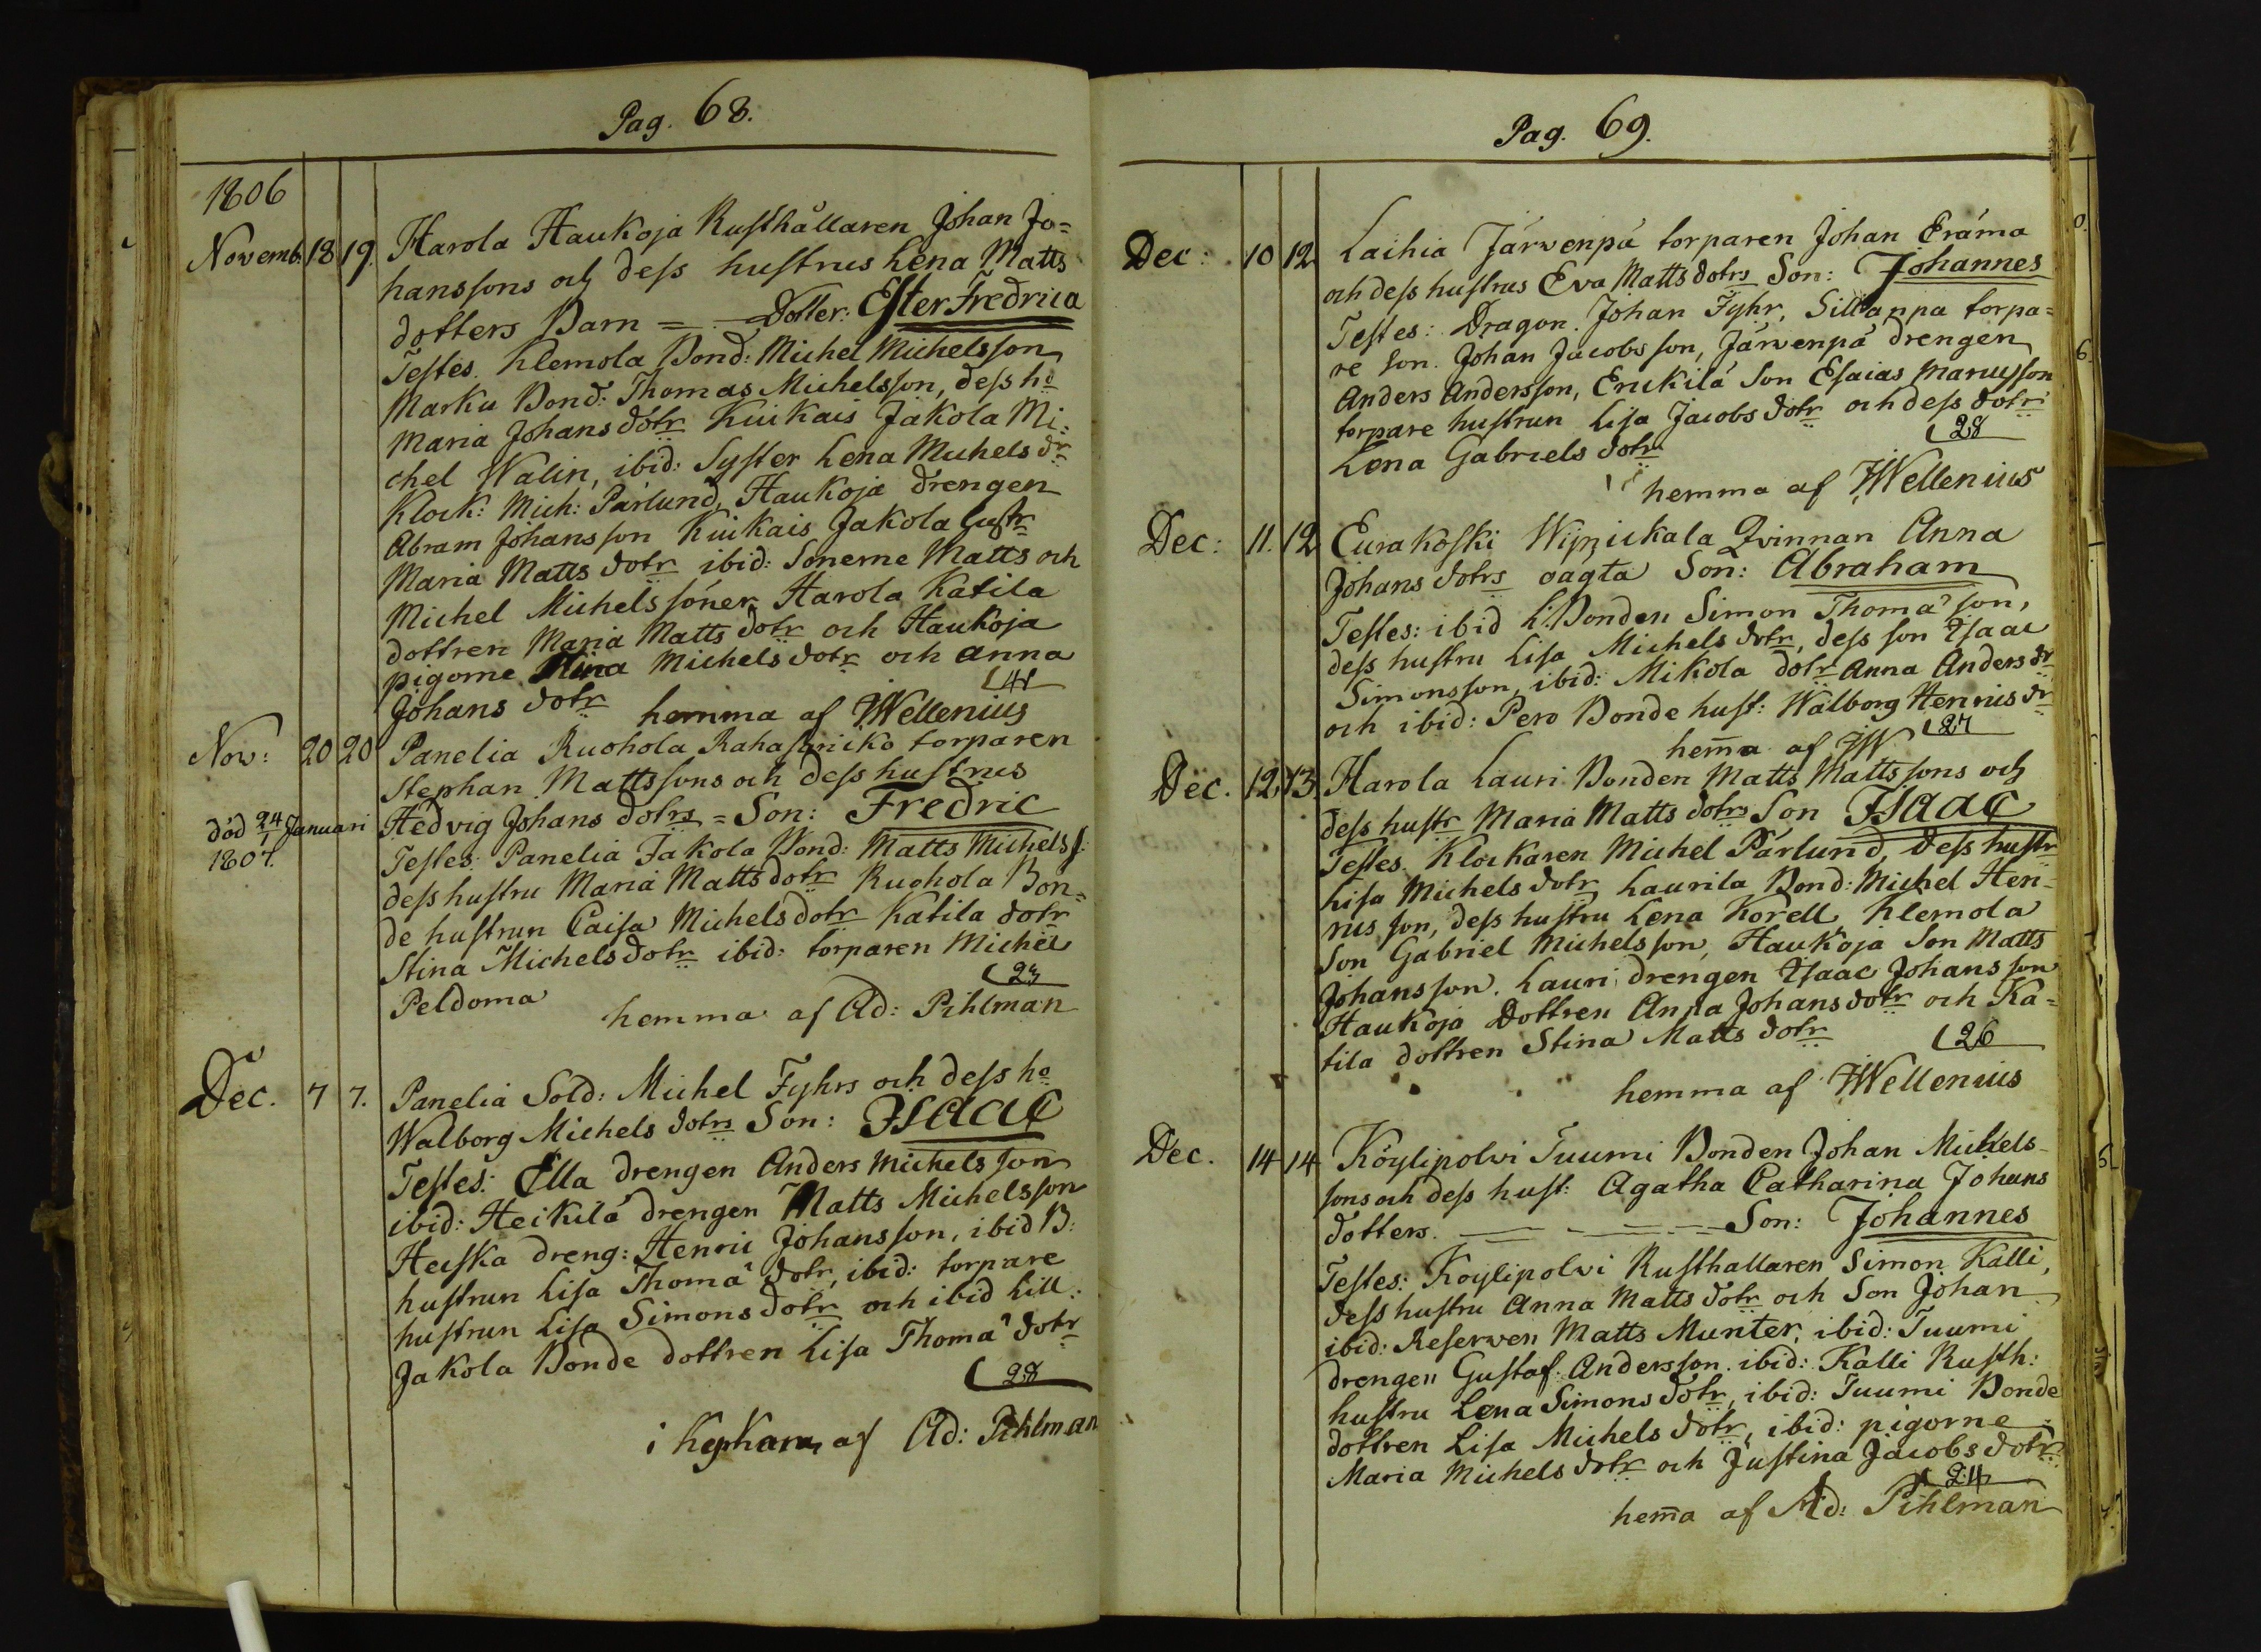 Pag. 68.
1806
Novemb. 18 19. Harola Haukoja Rusthållaren Johan Jo=
hanssons och dess hustrus Lena Matts
dotters Barn = Dotter: Ester Fredrica
Testes. Klemola Bond: Michel Michelsson
Marku Bond: Thomas Michelsson, dess ho
Maria Johans dotr Kiukais Jakola Mi:
chel Walin, ibid: Syster Lena Michels dr
Klock: Mich: Pärlund, Haukoja drengen
Abram Johansson Kiukais Jakola hustr
Maria Matts dotr ibid: Sönerne Matts och
Michel Michels söner Harola Katila
dottren Maria Matts dotr och Haukoja
pigorne Stina Michels dotr och Anna
Johans dotr 41
hemma af JWellenius
Nov: 20 20 Panelia Ruohola Raha torparen
Stephan Mattssons och dess hustrus
Hedvig Johans dotrs = Son: Fredric
död 24/1 Januari
1807.
Testes: Panelia Jakola Bond: Matts Michels s.
dess hustru Maria Matts dotr Ruohola Bon=
de hustrun Caisa Michels dotr Katila dotr
Stina Michels dotr ibid: torparen Michel
Peldoma 23
hemma af Ad: Pihlman
Dec. 7 7. Panelia Sold: Michel Fyhrs och dess ho
Walborg Michels dotrs Son: Isaac
Testes: Ella drengen Anders Michelsson
ibid: Heikilä drengen Matts Michelsson
Heiska dreng: Henric Johansson, ibid B:
hustrun Lisa Thomæ dotr, ibid: torpare
hustrun Lisa Simons dotr och ibid Lill:
Jakola Bonde dottren Lisa Thomæ dotr
28
i Kyrkan af Ad: Pihlman
Pag. 69.
Dec: 10 12 Laihia Järvenpä torparen Johan Eräma
och dess hustrus Eva Matts dotrs Son: Johannes
Testes: Dragon. Johan Fyhr, Sillanpa torpa=
re son. Johan Jacobsson, Järvenpä drengen
Anders Andersson, Erickilä Son Esaias Marcusson
torpare hustrun Lisa Jacobs dotr och dess dotr
Lena Gabriels dotr 28
hemma af JWellenius
Dec: 11. 12 Eurakoski Qvinnan Anna
Johans dotrs oägta Son: Abraham
Testes: ibid L: Bonden Simon Thomæ son,
dess hustru Lisa Michels dotr, dess son Isaac
Simonsson, ibid: Mikola dotr Anna Anders dr
och ibid: Pero Bonde hust: Walborg Henrics dr
27
hem̄a af JW
Dec. 12. 13. Harola Lauri Bonden Matts Mattssons och
dess hustr Maria Matts dotrs Son Isaac
Testes. Klockaren Michel Pärlund, dess hustr
Lisa Michels dotr Laurila Bond: Michel Hen-
ricsson, dess hustru Lena Korell Klemola
Son Gabriel Michelsson, Haukoja Son Matts
Johansson. Lauri drengen Isaac Johansson
Haukoja Dottren Anna Johans dotr och Ka=
tila dottren Stina Matts dotr 26
hemma af JWellenius
Dec. 14 14 Köylipolvi Tuumi Bonden Johan Michels-
sons och dess hust: Agatha Catharina Johans
dotters. Son: Johannes
Testes: Koylipolvi Rusthallaren Simon Kalli,
dess hustru Anna Matts dotr och Son Johan
ibid: Reserven Matts Munter, ibid: Tuumi
drengen Gustaf Andersson. ibid: Kalli Rusth:
hustru Lena Simons dotr, ibid: Tuumi Bonde
dottren Lisa Michels dotr, ibid: pigorne
Maria Michels dotr och Justina Jacobs dotr
24
hem̄a af Ad: Pihlman